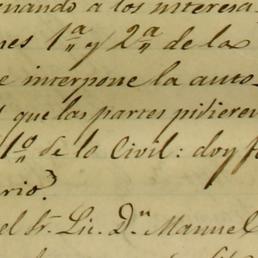 rmando a los interesa-
nes 1ª y 2ª de la
e interpone la auto-
que las partes pidieren
1º de lo Civil: doy f
ario.
el Sr. Lic. Dn. Manuel